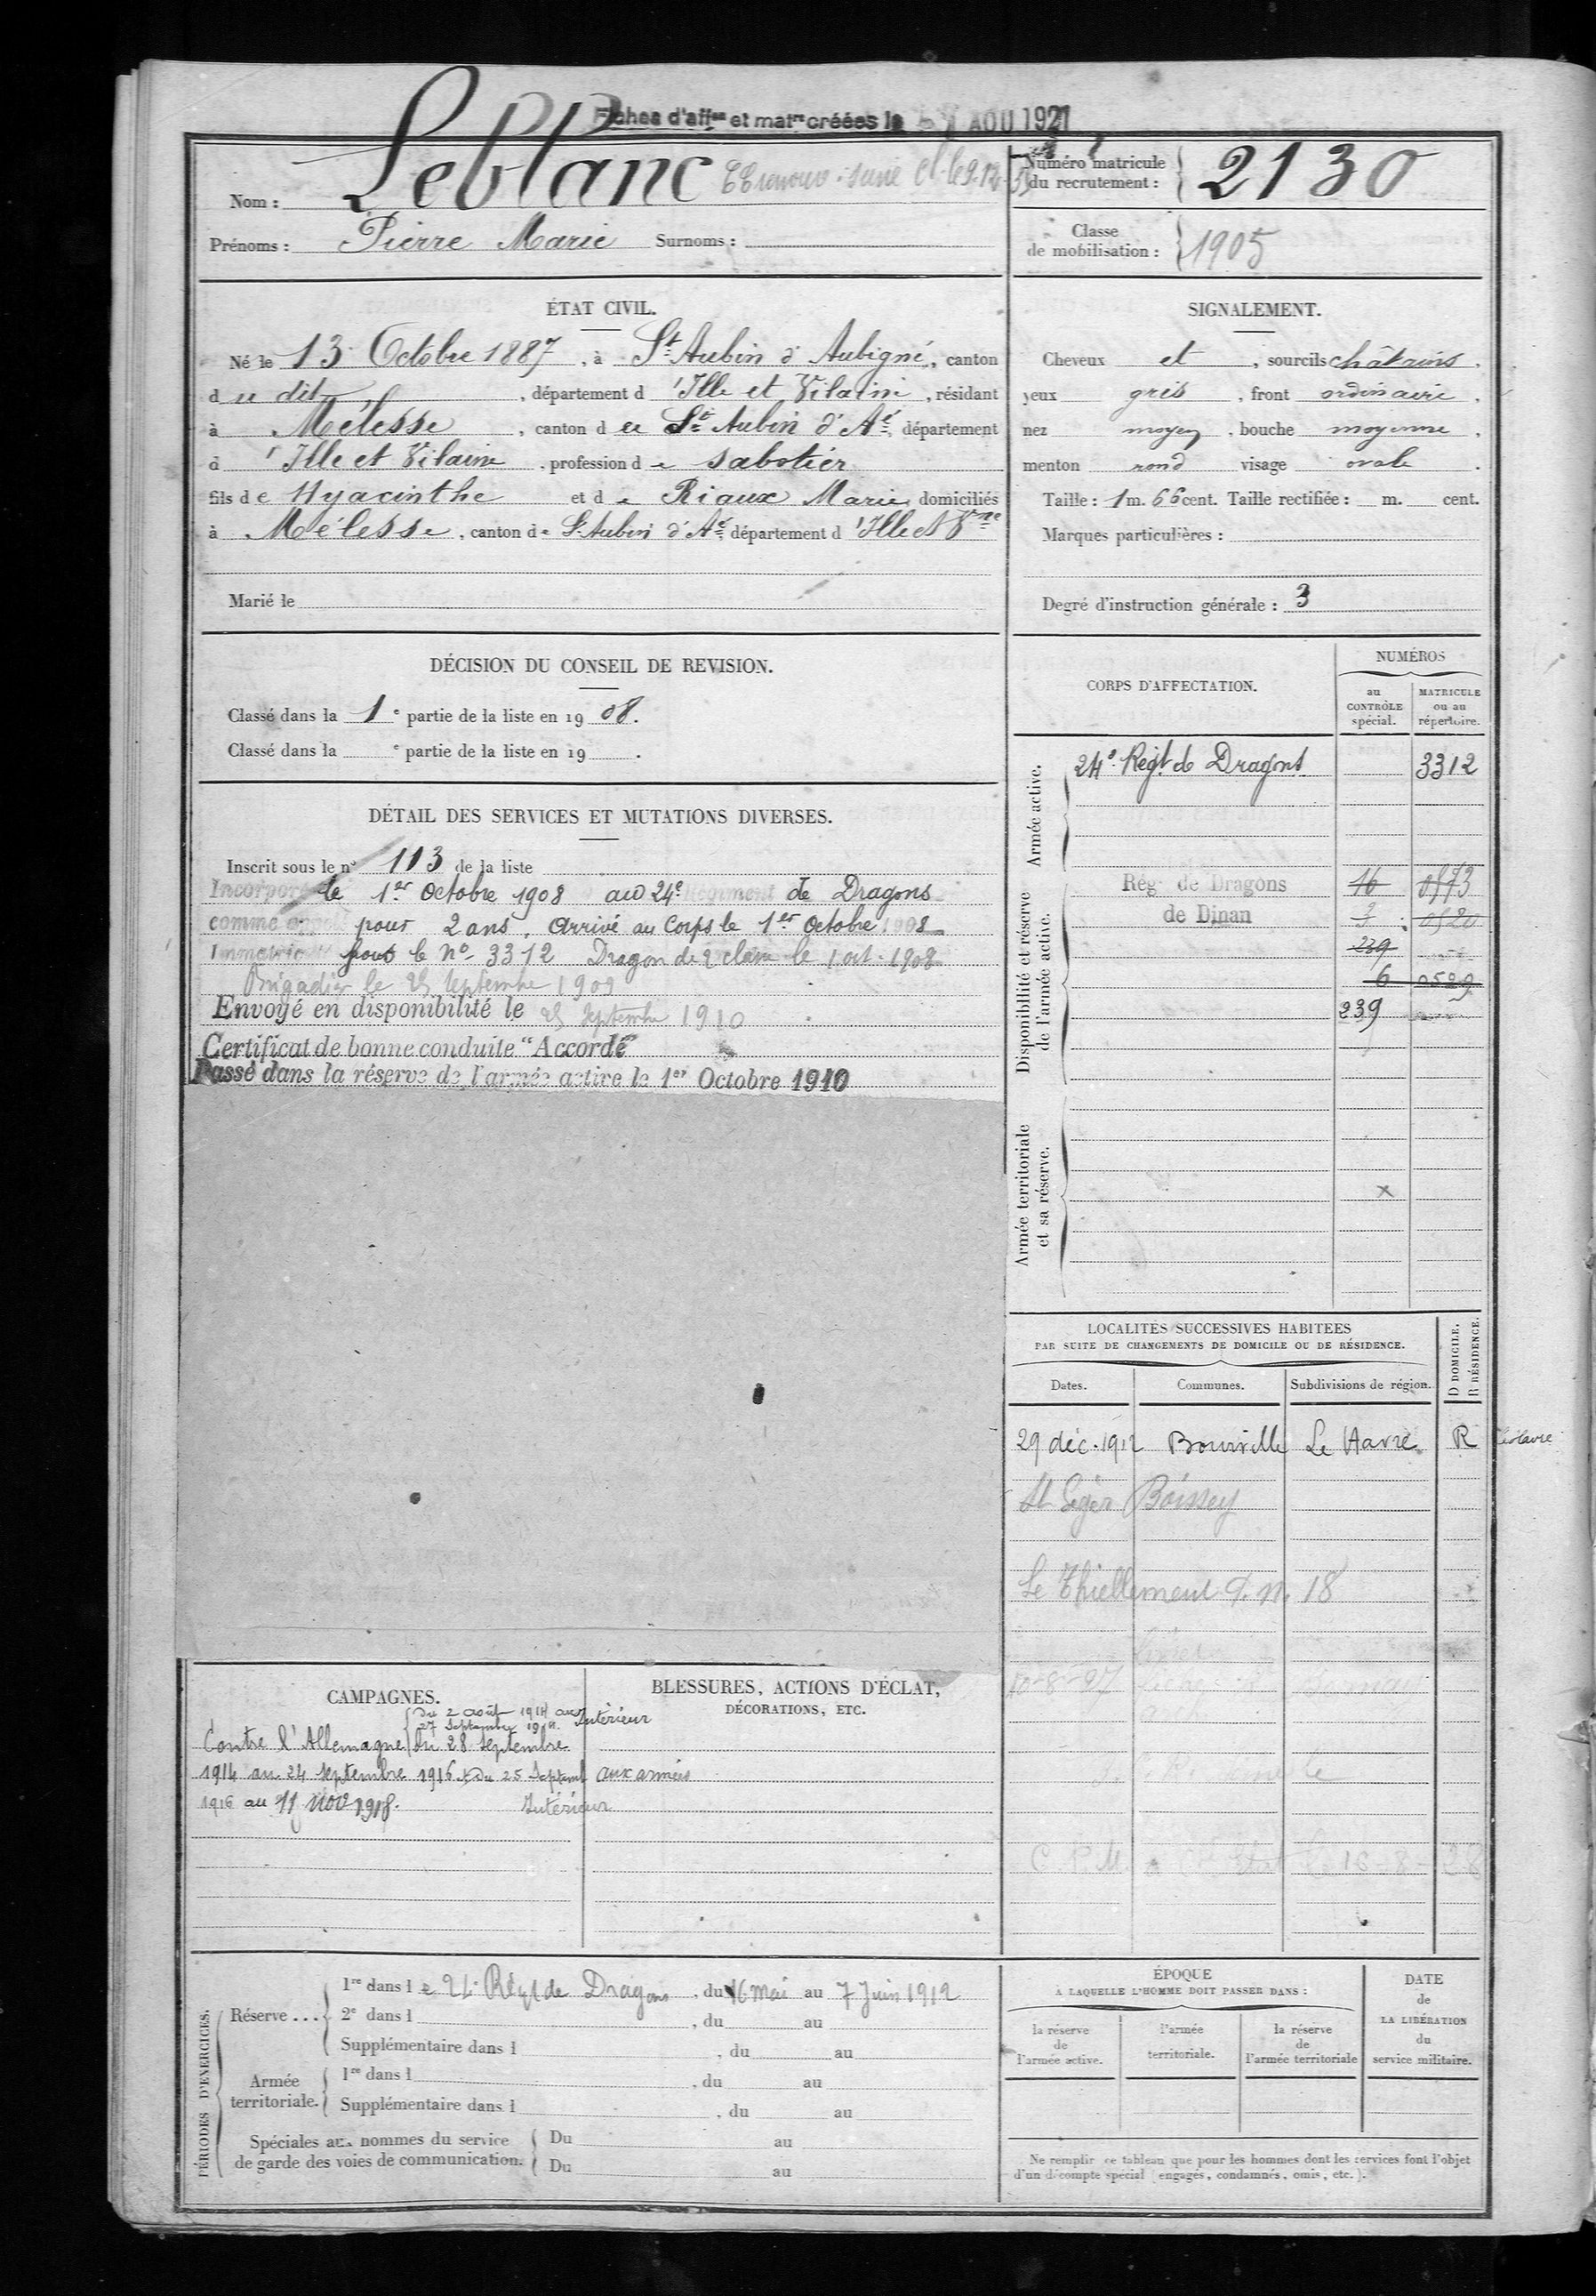 Fiches d'aff.on et mat.re créées le AOU 1921
Nom : Leblanc
Numéro matricule du recrutement : 2130
Prénoms : Pierre Marie Surnoms :
Classe de mobilisation : 1905
ÉTAT CIVIL.
Né le 13 Octobre 1887, à St Aubin d'Aubigné, canton
du dit, département d'Ille et Vilaine, résidant
à Mélesse, canton de St Aubin d'Aé, département
d'Ille et Vilaine, profession de sabotier
fils de Hyacinthe et de Riaux Marie domiciliés
à Mélesse, canton de St Aubin d'Aé, département d'Ille et Vne
Marié le
SIGNALEMENT.
Cheveux et, sourcils châtains,
yeux gris, front ordinaire,
nez moyen, bouche moyenne,
menton rond visage ovale.
Taille : 1 m. 66 cent. Taille rectifiée : m. cent.
Marques particulières :
Degré d'instruction générale : 3
DÉCISION DU CONSEIL DE REVISION.
Classé dans la 1e partie de la liste en 1908.
Classé dans la e partie de la liste en 19 .
DÉTAIL DES SERVICES ET MUTATIONS DIVERSES.
Inscrit sous le n° 113 de la liste
Incorporé le 1er Octobre 1908 au 24e Régiment de Dragons
comme appelé pour 2 ans. Arrivé au Corps le 1er Octobre 1908
Immatriculé sous le No 3312 Dragon de 2 classe le 1 oct. 1908
Brigadier le 25 Septembre 1909
Envoyé en disponibilité le 25 Septembre 1910
Certificat de bonne conduite "Accordé"
Passé dans la réserve de l'armée active le 1er Octobre 1910
CORPS D'AFFECTATION.
NUMÉROS
au CONTRÔLE spécial.
MATRICULE ou au répertoire.
Armée active.
24e Régt de Dragons 3312
Disponibilité et réserve de l'armée active.
Rég. de Dragons 16 0573
de Dinan 3 0520
239
6 0529
239
Armée territoriale et sa réserve.
x
LOCALITÉS SUCCESSIVES HABITÉES
PAR SUITE DE CHANGEMENTS DE DOMICILE OU DE RÉSIDENCE.
Dates. Communes. Subdivisions de région. D DOMICILE. R RÉSIDENCE.
29 déc. 1912 Bourville Le Havre R
St Léger Boissey
Le Thiellement 18
10-8-27
16-8-28
CAMPAGNES.
Du 2 août 1914 au
27 Septembre 1914. Intérieur
Contre l'Allemagne Du 28 Septembre
1914 au 24 Septembre 1916 & du 25 Septemb aux armées
1916 au 11 nov 1918. Intérieur
BLESSURES, ACTIONS D'ÉCLAT,
DÉCORATIONS, ETC.
PÉRIODES D'EXERCICES.
Réserve ...
1re dans le 24e Régt de Dragons, du 16 mai au 7 Juin 1912
2e dans l , du au
Supplémentaire dans l , du au
Armée territoriale.
1re dans l , du au
Supplémentaire dans l , du au
Spéciales aux hommes du service
de garde des voies de communication.
Du au
Du au
ÉPOQUE
A LAQUELLE L'HOMME DOIT PASSER DANS :
la réserve de l'armée active.
l'armée territoriale.
la réserve de l'armée territoriale
DATE de LA LIBÉRATION du service militaire.
Ne remplir ce tableau que pour les hommes dont les services font l'objet
d'un décompte spécial (engagés, condamnés, omis, etc.).